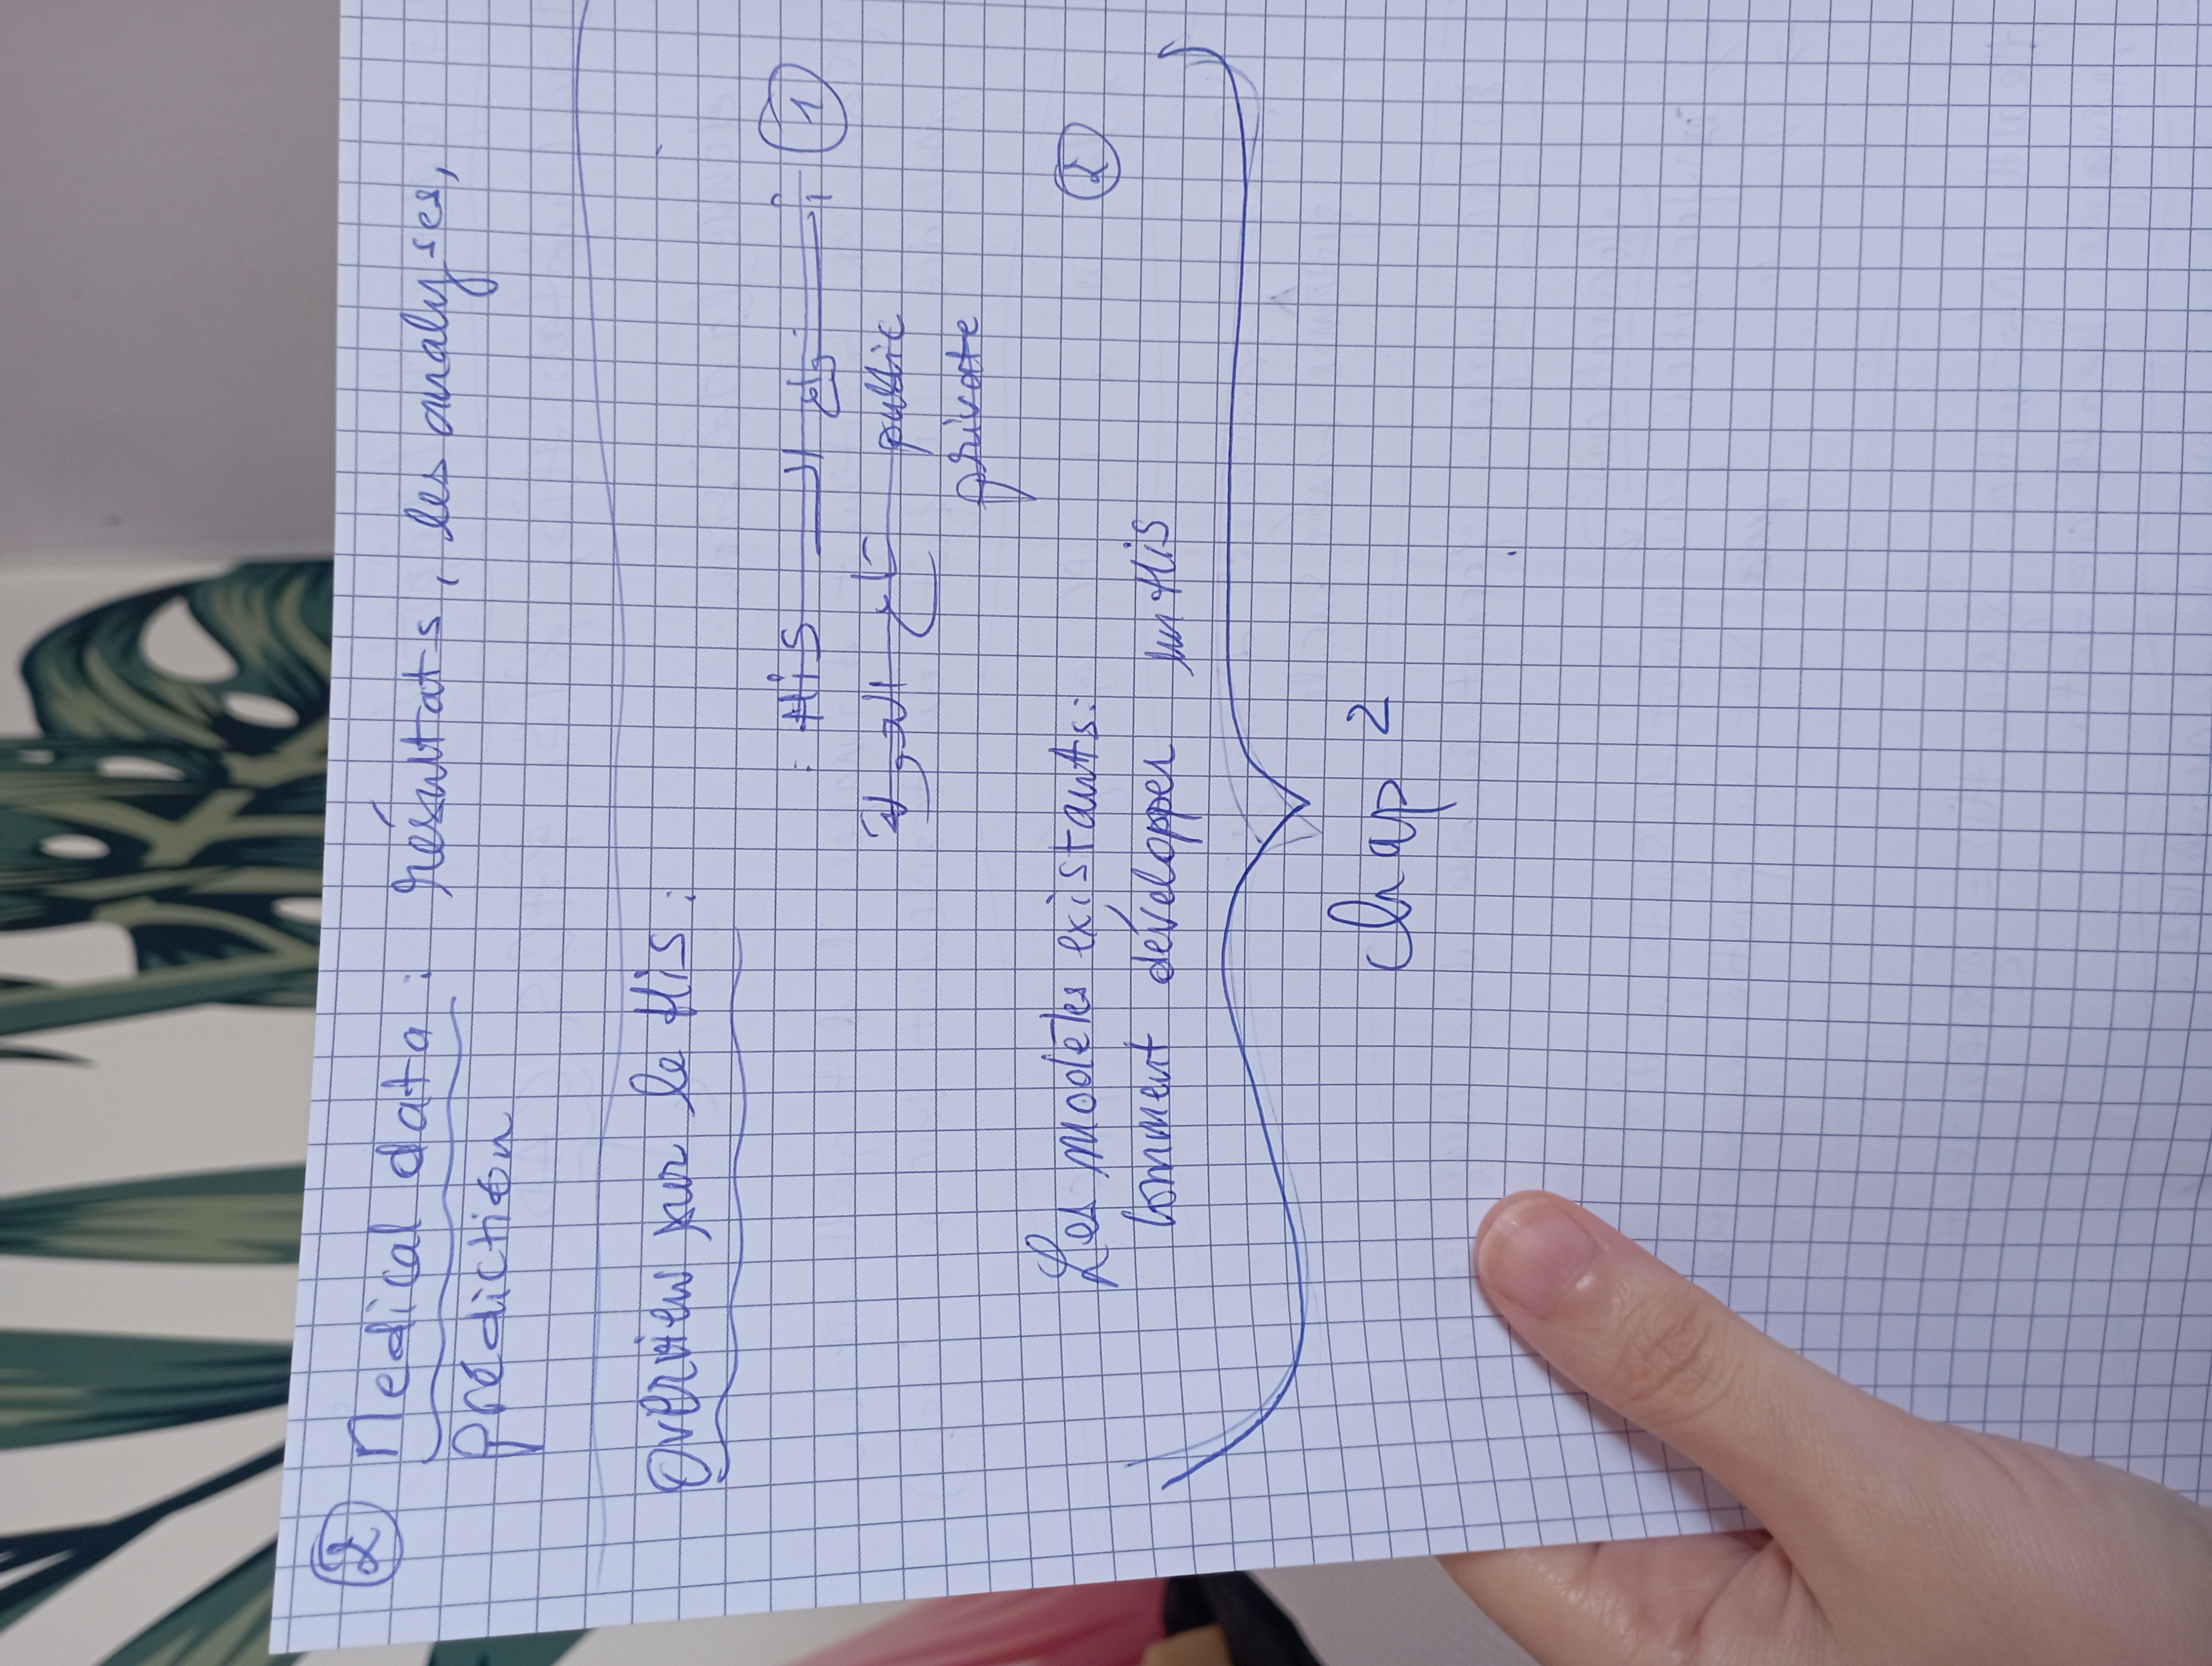 ② Medical data : résultats, les analyses,
prédiction
Overview sur le His :
① أنواع الـ His :
public تاع الدولة
private
Les modèles existants: ②
Comment développer un His
Chap 2